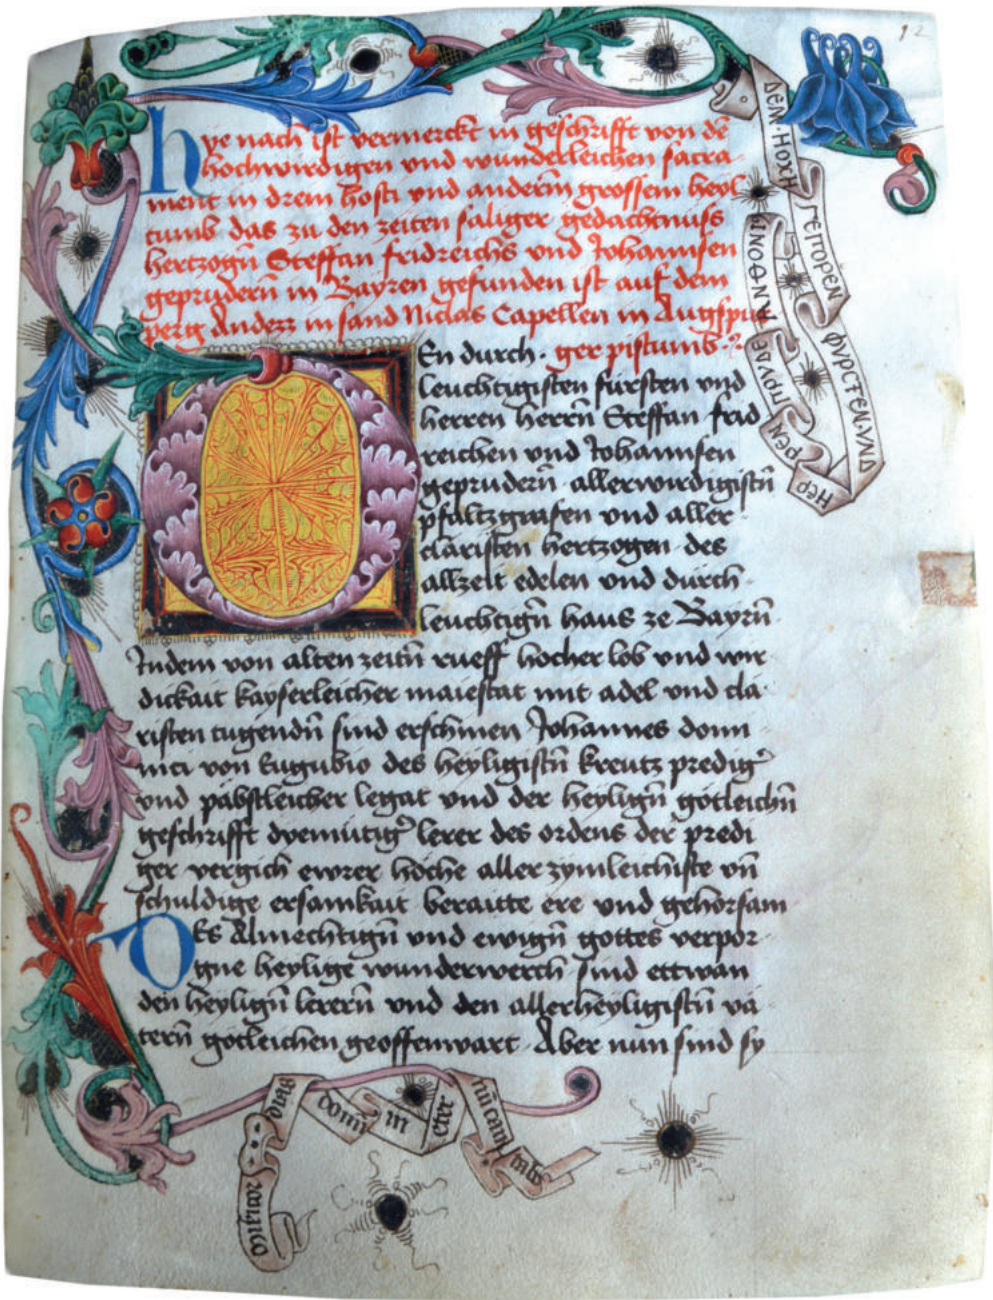 hye nach ist vermerckt in geschrifft von dē
hochwirdigen und wunderleichen sacra
ment in drein hosti und anderm grossem heyl
tumb das zu den zeiten säliger gedächtnuss
hertzogn̄ Steffan fridreichs und Johannsen
geprudern̄ in Bayren gefunden ist auf dem
perg Andezz in sand Niclas Capellen in Augspur
ger pistumb
DEn durch
leuchtigisten fürsten und
herren herrn̄ Steffan frid
reichen und Johannsen
geprudern̄ allerwirdigistn̄
pfaltzgrafen und aller
clåristen hertzogen des
allzeit edelen und durch
leuchtign̄ haus ze Bayrn̄
Indem von alten zeitn̄ rueff hocher lob und wir
dickait kayserleicher maiestat mit adel und cla
risten tugendn̄ sind erschinen Johannes domi
nici von Eugubio des heyligistn̄ kreutz predig
und påbstleicher legat und der heylign̄ gotleichn̄
geschrifft dyemůtig lerer des ordens der predi
ger vergich ewrer höche aller zymleichiste un̄
schuldige ersamkait beraitte ere und gehorsam
Des Almechtign̄ und ewign̄ gottes verpor
gne heylige wunderwerch sind ettwan
den heylign̄ lerern̄ und den allerheyligistn̄ vä
tern̄ gotleichen geoffenwart Aber nun sind sy
DEM HOXH
ΓΕΠΟΡΕΝ
ΦVΡCTEN VND
HEP
PEN
ΠPVDE
misericordias domi in eter nū cantabo
12